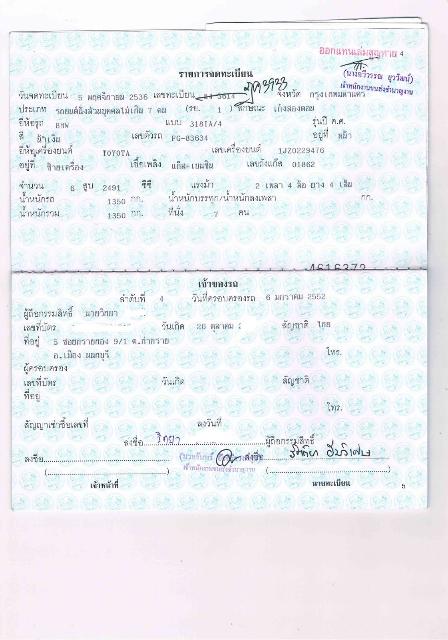 ออกแทนเล่มสูญหาย 4
รายการจดทะเบียน
(นางฉวีวรรณ สุววัฒน์)
เจ้าพนักงานขนส่งชำนาญงาน
วันจดทะเบียน 5 พฤศจิกายน 2536 เลขทะเบียน 3614 จังหวัด กรุงเทพมหานคร
ประเภท รถยนต์นั่งส่วนบุคคลไม่เกิน 7 คน (รย. 1) ลักษณะ เก๋งสองตอน
ยี่ห้อรถ BMW แบบ 318IA/4 รุ่นปี ค.ศ.
สี ฟ้า,เงิน เลขตัวรถ PG-83634 อยู่ที่ หน้า
ยี่ห้อเครื่องยนต์ TOYOTA เลขเครื่องยนต์ 1JZ0229476
อยู่ที่ ซ้ายเครื่อง เชื้อเพลิง แก๊ส-เบนซิน เลขถังแก๊ส 01862
จำนวน 6 สูบ 2491 ซีซี แรงม้า 2 เพลา 4 ล้อ ยาง 4 เส้น
น้ำหนักรถ 1350 กก. น้ำหนักบรรทุก/น้ำหนักลงเพลา กก.
น้ำหนักรวม 1350 กก. ที่นั่ง 7 คน
4616372
เจ้าของรถ
ลำดับที่ 4 วันที่ครอบครองรถ 6 มกราคม 2552
ผู้ถือกรรมสิทธิ์ นายวิทยา
เลขที่บัตร วันเกิด 26 ตุลาคม 2 สัญชาติ ไทย
ที่อยู่ 5 ซอยทรายทอง 9/1 ต.ท่าทราย
อ.เมือง นนทบุรี โทร.
ผู้ครอบครอง
เลขที่บัตร วันเกิด สัญชาติ
ที่อยู่
โทร.
สัญญาเช่าซื้อเลขที่ ลงวันที่
ลงชื่อ วิทยา ผู้ถือกรรมสิทธิ์
ลงชื่อ ลงชื่อ
เจ้าพนักงานขนส่งชำนาญงาน
( ) ( )
เจ้าหน้าที่ นายทะเบียน
5